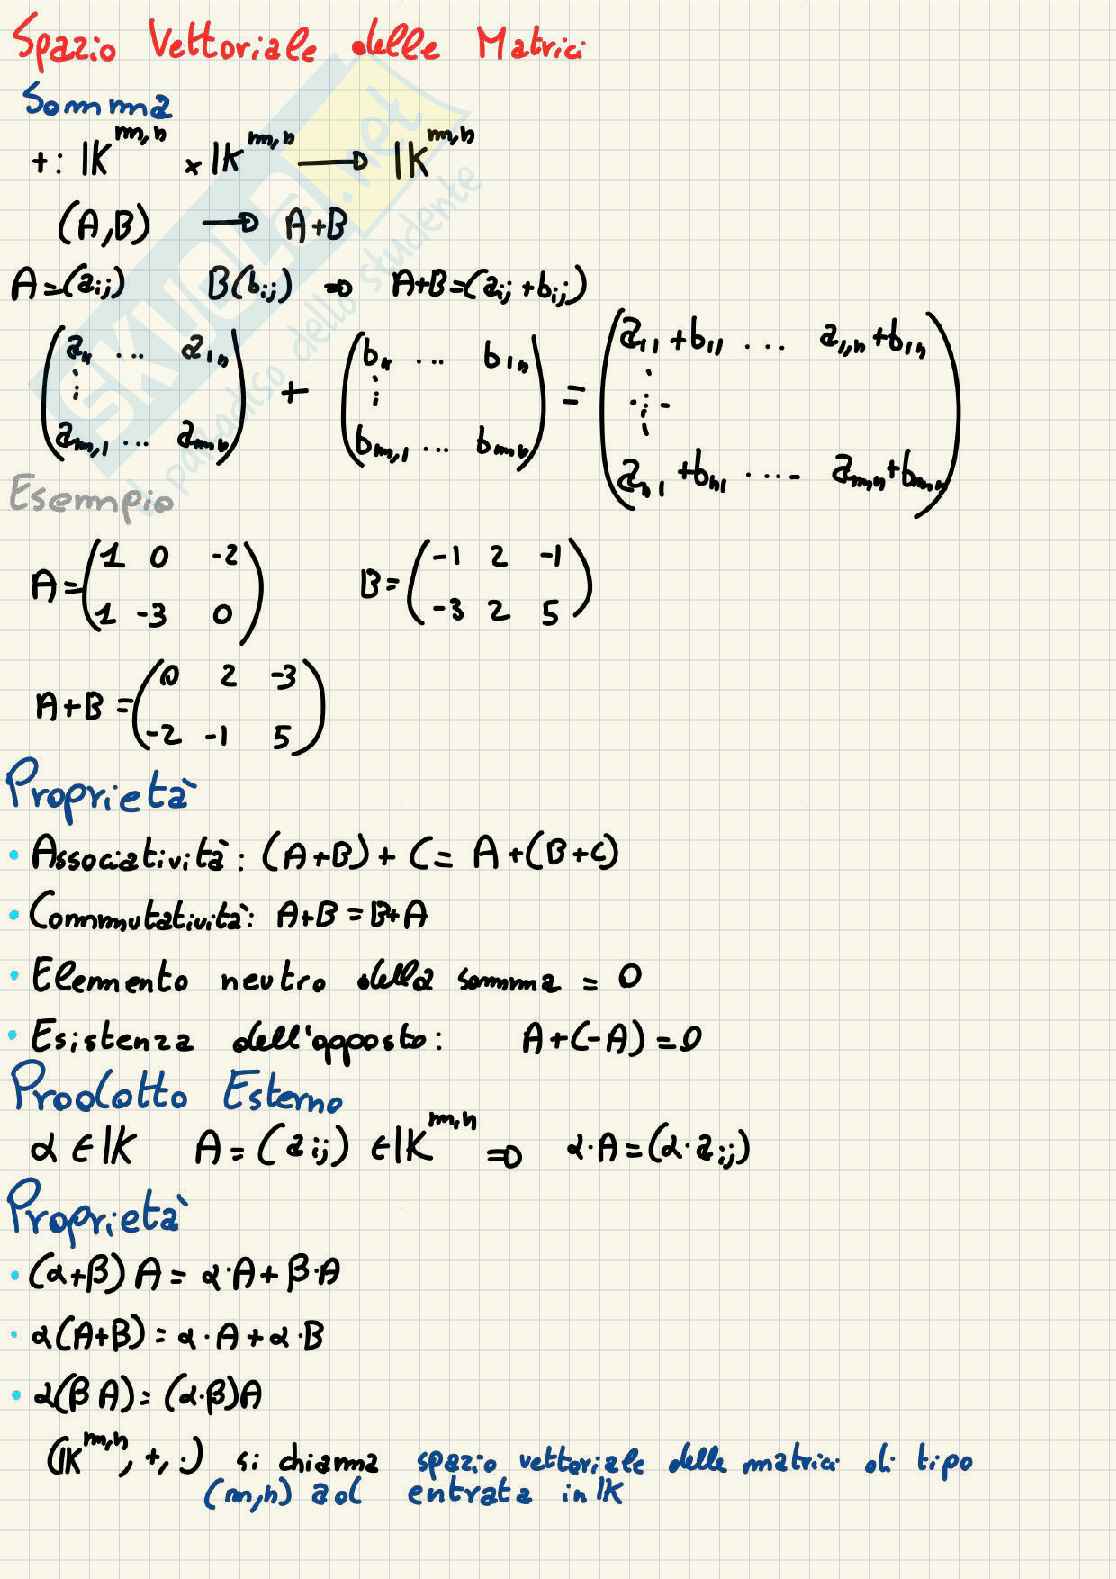 Spazio Vettoriale delle Matrici
Somma
+: K^m,n × K^m,n → K^m,n
(A,B) → A+B
A=(aij) B(bij) ⇒ A+B=(aij+bij)
(a11 ... a1n) + (b11 ... b1n) = (a11+b11 ... a1,n+b1n)
(⋮) (⋮) (⋮)
(am,1 ... amn) (bm,1 ... bmn) (an1+bn1 .... am,n+bm,n)
Esempio
A=(1 0 -2) B=(-1 2 -1)
(1 -3 0) (-3 2 5)
A+B=(0 2 -3)
(-2 -1 5)
Proprietà
• Associatività: (A+B)+C= A+(B+C)
• Commutatività: A+B=B+A
• Elemento neutro della somma = 0
• Esistenza dell'opposto: A+(-A)=0
Prodotto Esterno
α ∈ K A=(aij) ∈ K^m,n ⇒ α·A=(α·aij)
Proprietà
• (α+β)A= α·A+β·A
• α(A+B)=α·A+α·B
• α(βA)=(α·β)A
(K^m,n, +, ·) si chiama spazio vettoriale delle matrici di tipo
(m,n) ad entrata in K
SKUOLA.net
il paradiso dello studente